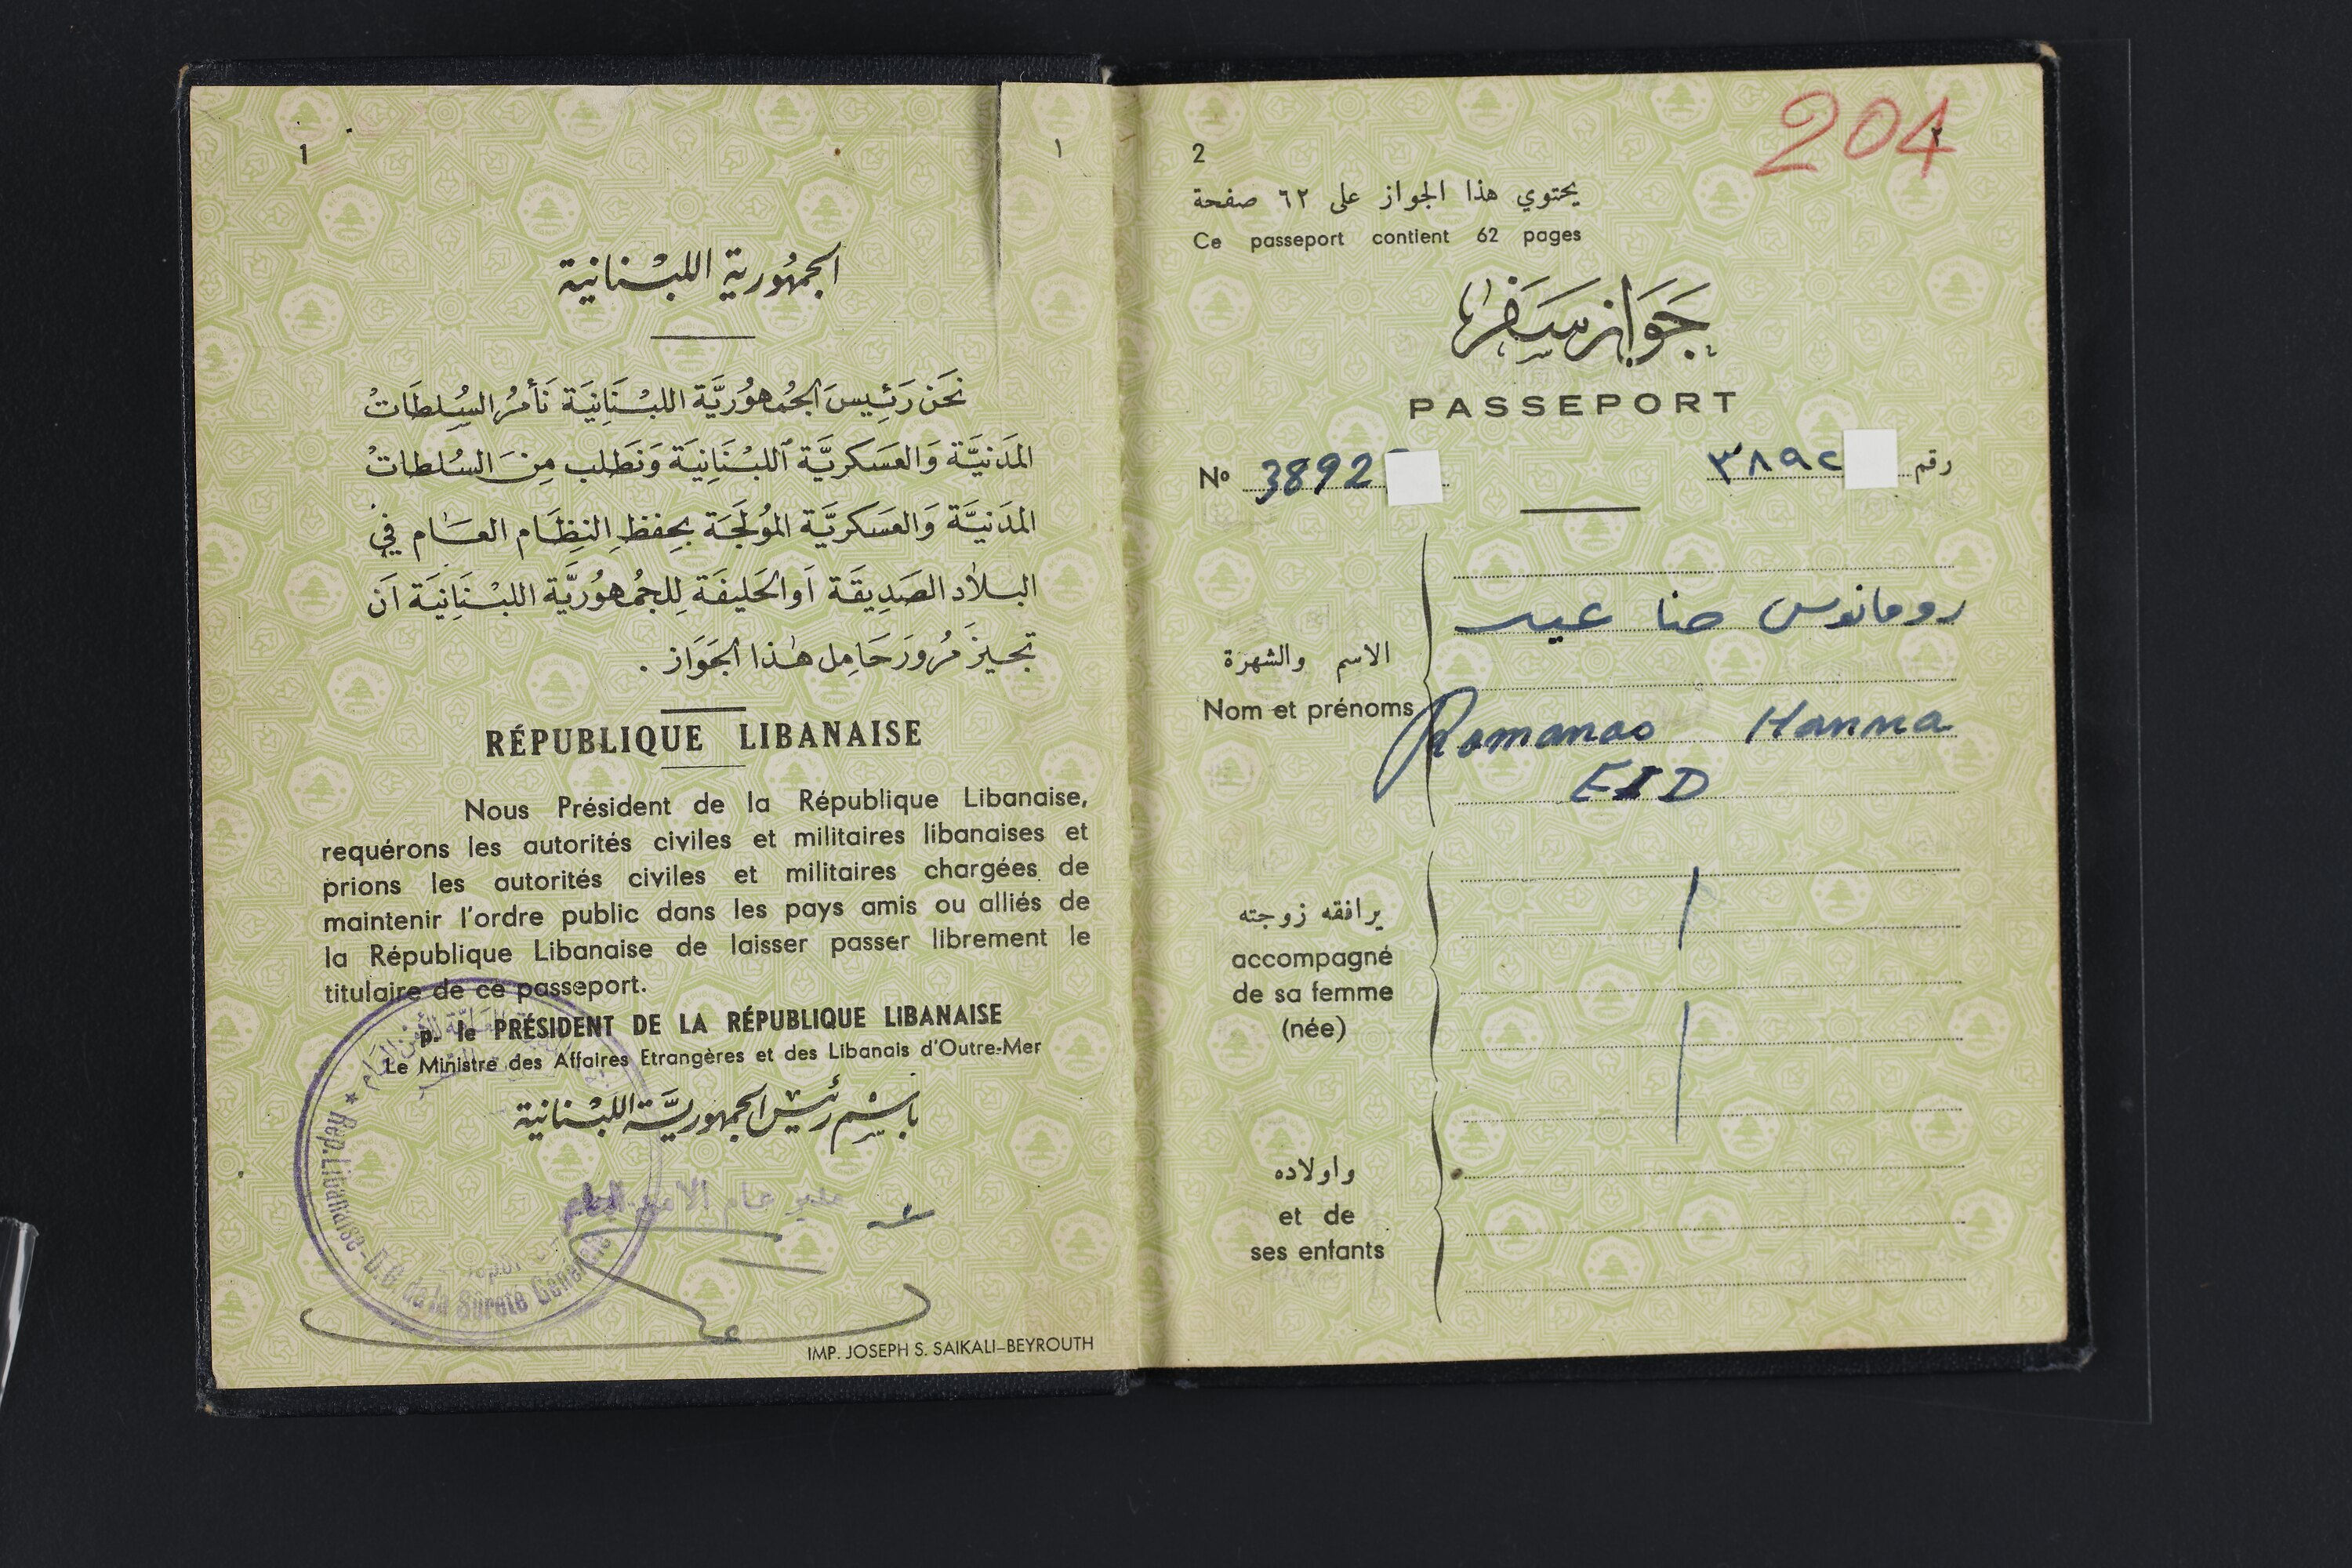 1
١
الجمهُورية اللبْنانية
نَحَن رَئِيسَ الجُمهوُريَّة اللبْنَانِيَة نَأمُر السُلطَاتْ
المَدَنيَّة وَالعَسكَريَّة اللبْنَانِيَة وَنَطَلب مِنَ السُلطاتْ
المَدَنيَّة وَالعَسَكريَّة المُوُلجَة بحِفظِ النِظَام العَام في
البلاد الصَدِيقَة اَو الحَليفَة لِلجُمهوُريَّة اللبْنَانِيَة اَن
تجيزَ مُرورَ حَامِل هٰذا الجَوَاز .
RÉPUBLIQUE LIBANAISE
Nous Président de la République Libanaise,
requérons les autorités civiles et militaires libanaises et
prions les autorités civiles et militaires chargées de
maintenir l'ordre public dans les pays amis ou alliés de
la République Libanaise de laisser passer librement le
titulaire de ce passeport.
p. le PRÉSIDENT DE LA RÉPUBLIQUE LIBANAISE
Le Ministre des Affaires Etrangères et des Libanais d'Outre-Mer
باسْم رئيسْ الجمهوريَّة اللبْنانية
مدير عام الامن العام
★ Rép. Libanaise - D.G. de la Sûreté Générale
IMP. JOSEPH S. SAIKALI–BEYROUTH
2
٢
204
يحتوي هذا الجواز على ٦٢ صفحة
Ce passeport contient 62 pages
جَوَاز سَفَر
PASSEPORT
No 3892
رقم ٣٨٩٢
رومانوس حنا عيد
الاسم والشهرة
Nom et prénoms
Romanos Hanna
EID
يرافقه زوجته
accompagné
de sa femme
(née)
واولاده
et de
ses enfants